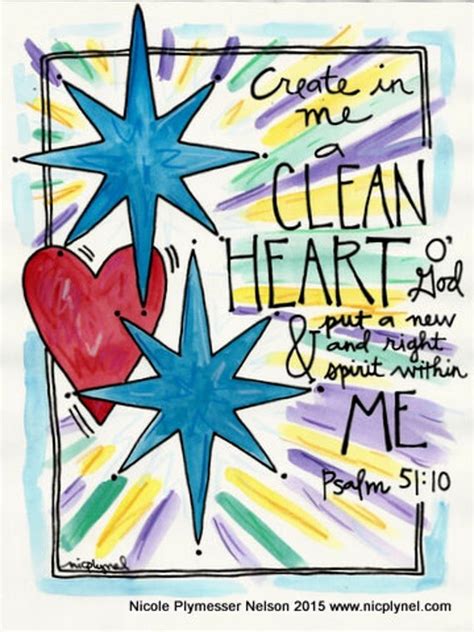 Create in
me
a
CLEAN
HEART O'
God
& put a new
and right
spirit within
ME
Psalm 51:10
nicplynel
Nicole Plymesser Nelson 2015 www.nicplynel.com